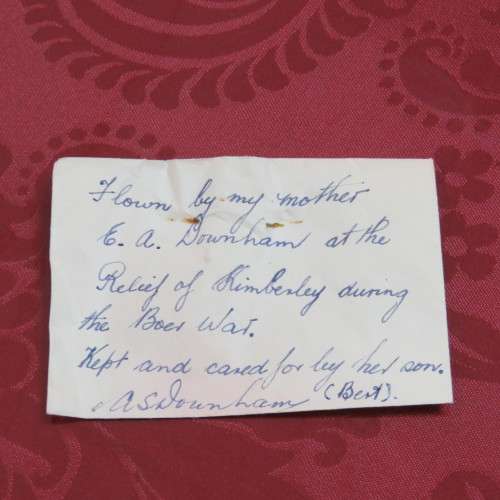 Flown by my mother
E. A. Downham at the
Relief of Kimberley during
the Boer War.
Kept and cared for by her son.
A S Downham (Bert).